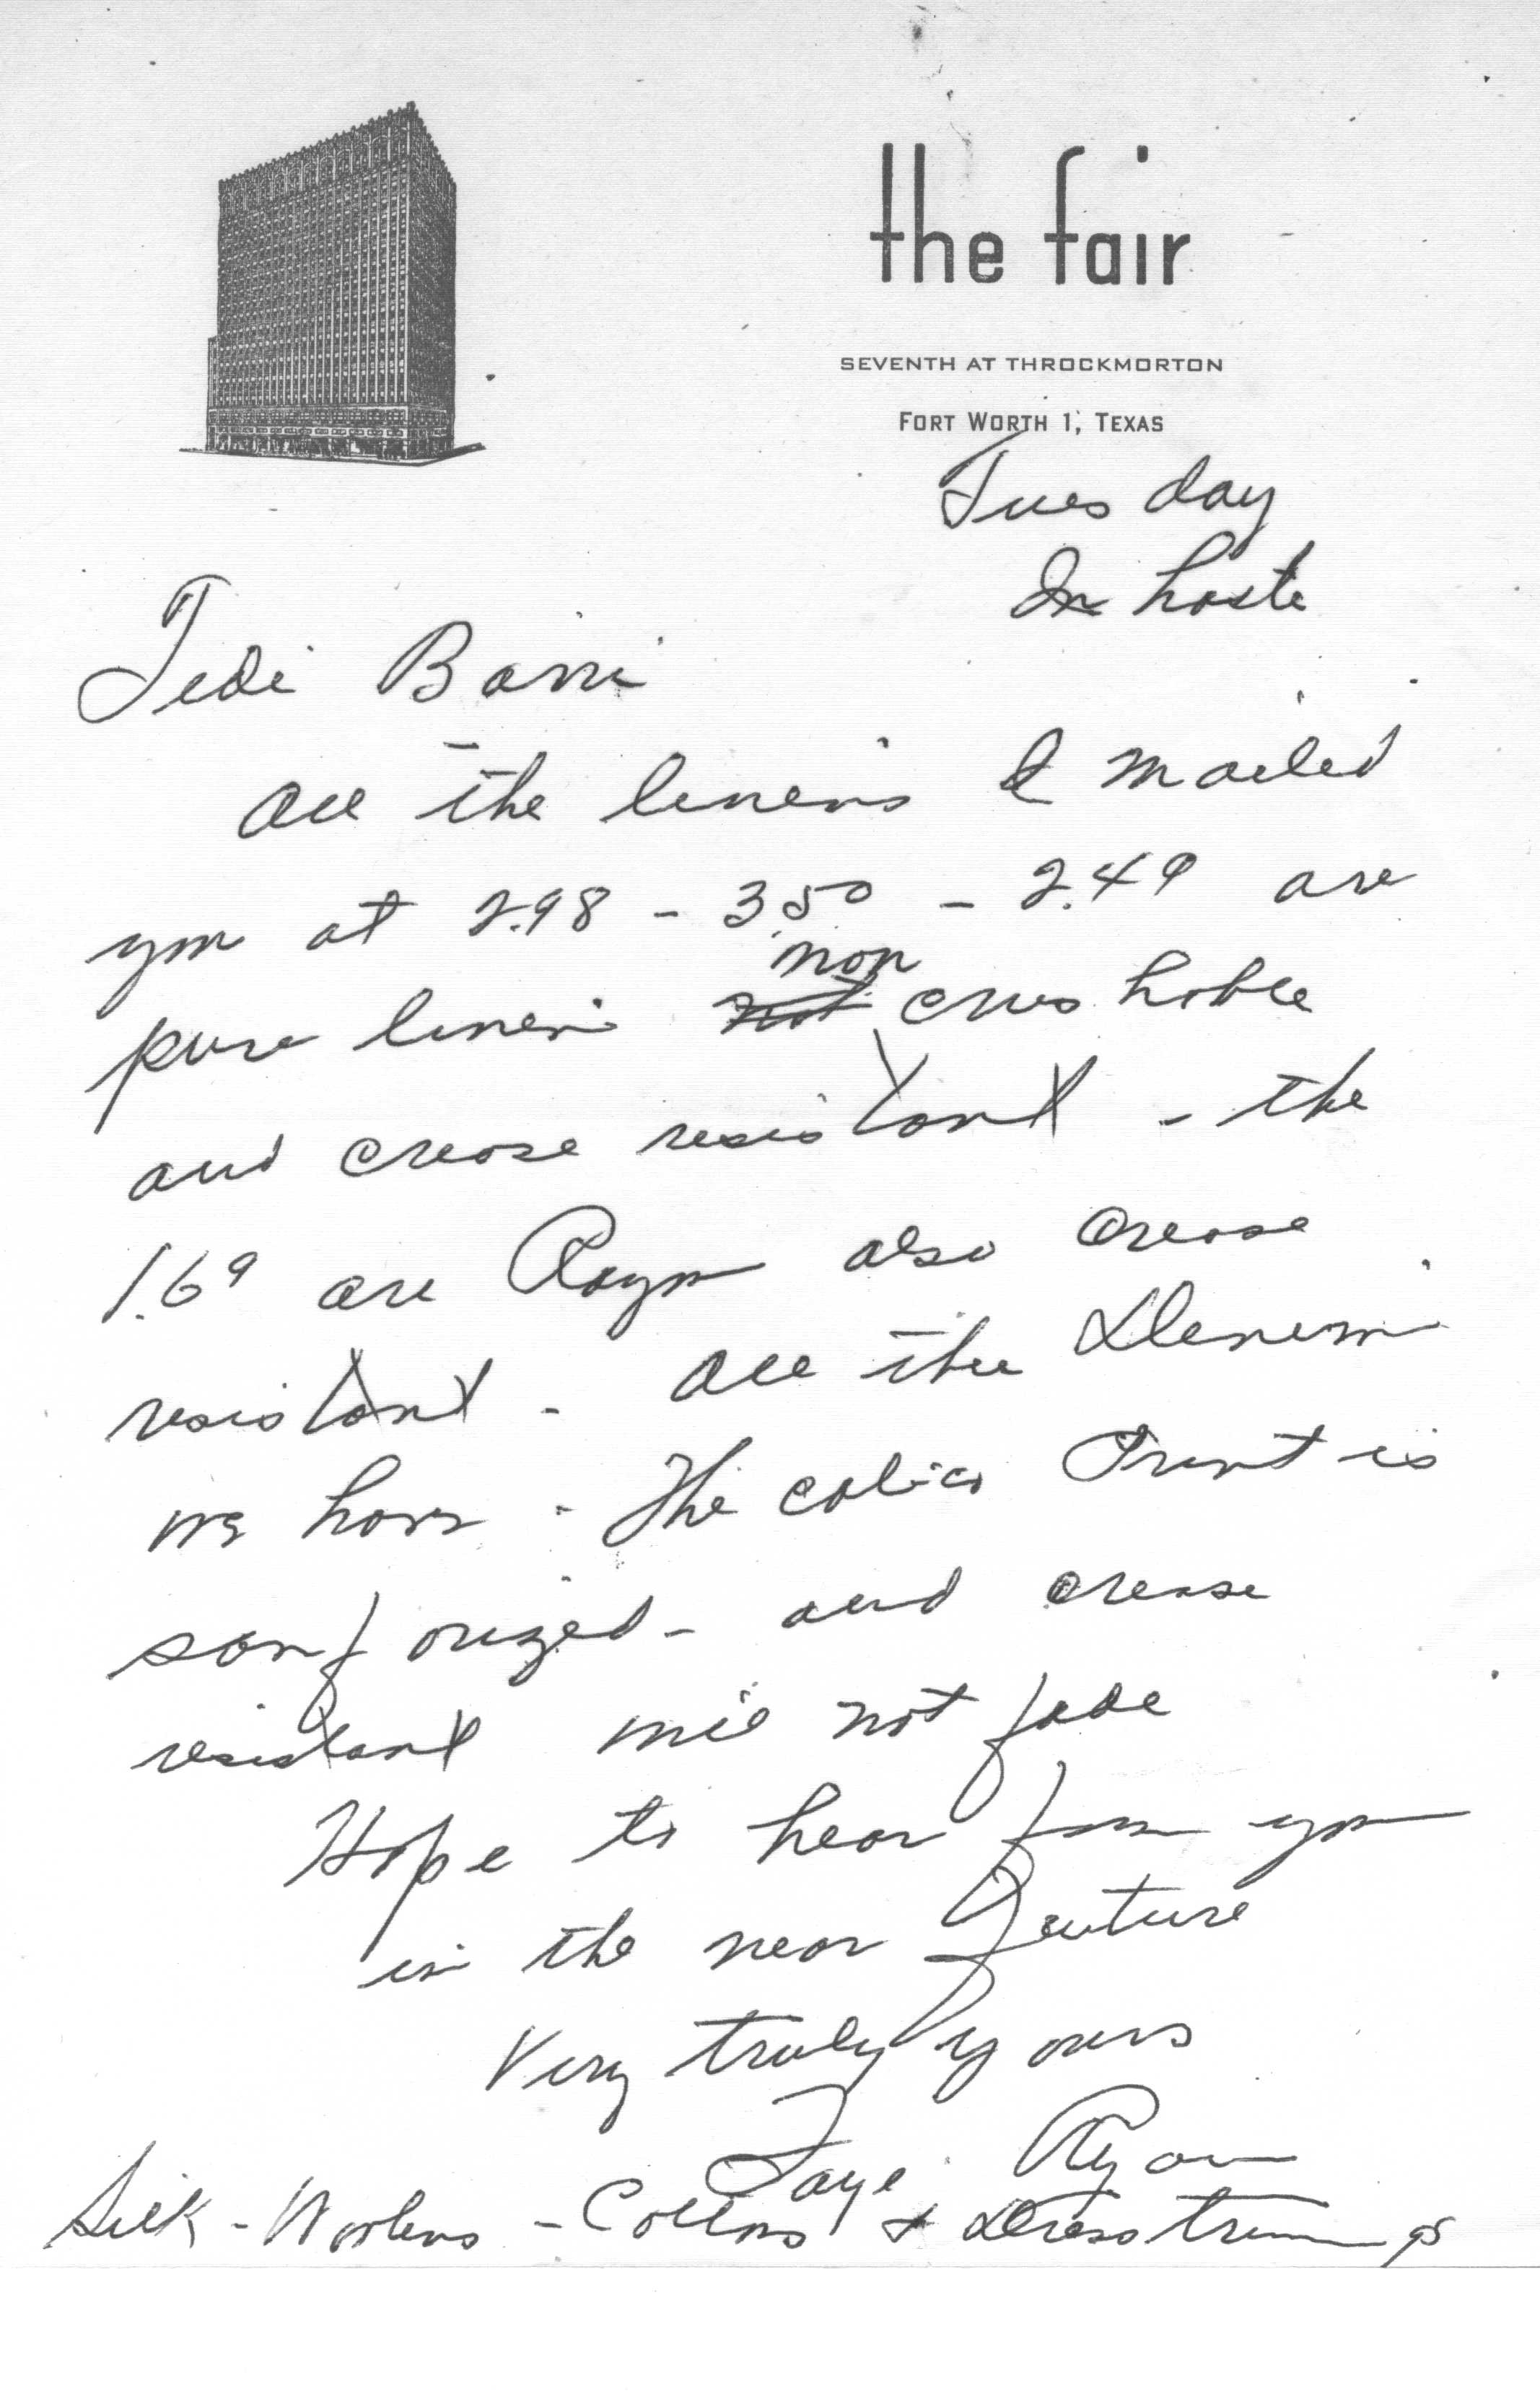 the fair
SEVENTH AT THROCKMORTON
FORT WORTH 1, TEXAS
Tuesday
In haste
Tedi Barri
All the linens I mailed
you at 2.98 - 3.50 - 2.49 are
pure linen not non crushable
and crease resistant - the
1.69 are Rayon also crease
resistant - All the Denim
we have - The calico Print is
sanforized - and crease
resistant will not fade
Hope to hear from you
in the near Future
Very truly yours
Faye Ryan
Silk - Woolens - Cottons & Dress trimings